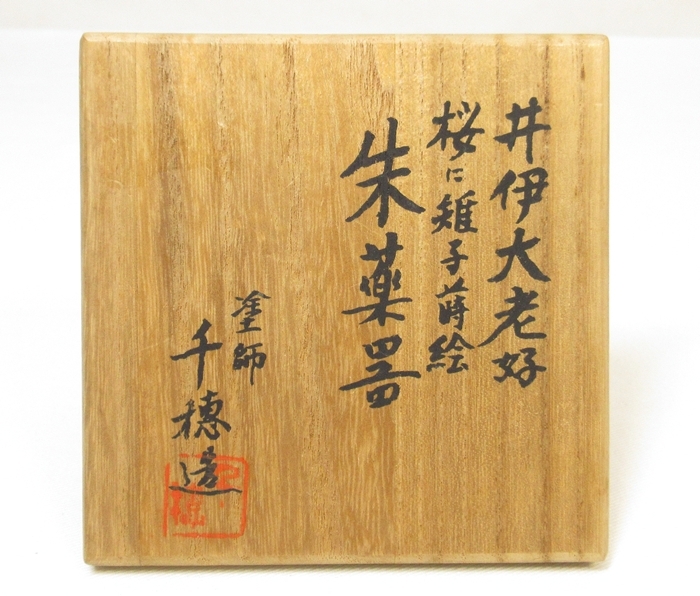 井伊大老好
桜に雉子蒔絵
朱薬器
塗師
千穂造